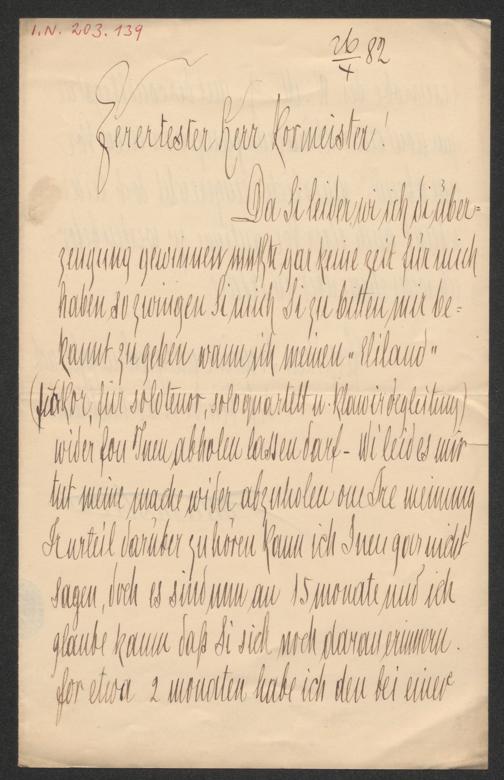 I.N. 203.139
26/4 82
Ferertester Herr Kormeister!
Da Si leider, wi ich di über=
zeugung gewinnen mußte gar keine zeit für mich
haben so zwingen Si mich Si zu bitten mir be=
kannt zu geben wann ich meinen "Eliland"
(für Kor, für solotenor, soloquartett u. klawirbegleitung)
wider fon Inen abholen lassen darf – Wi leid es mir
tut meine mache wider abzuholen one Ire meinung
Ir urteil darüber zu hören kann ich Inen gar nicht
sagen, doch es sind nun an 15 monate und ich
glaube kaum daß Si sich noch daran erinnern.
for etwa 2 monaten habe ich den bei einer